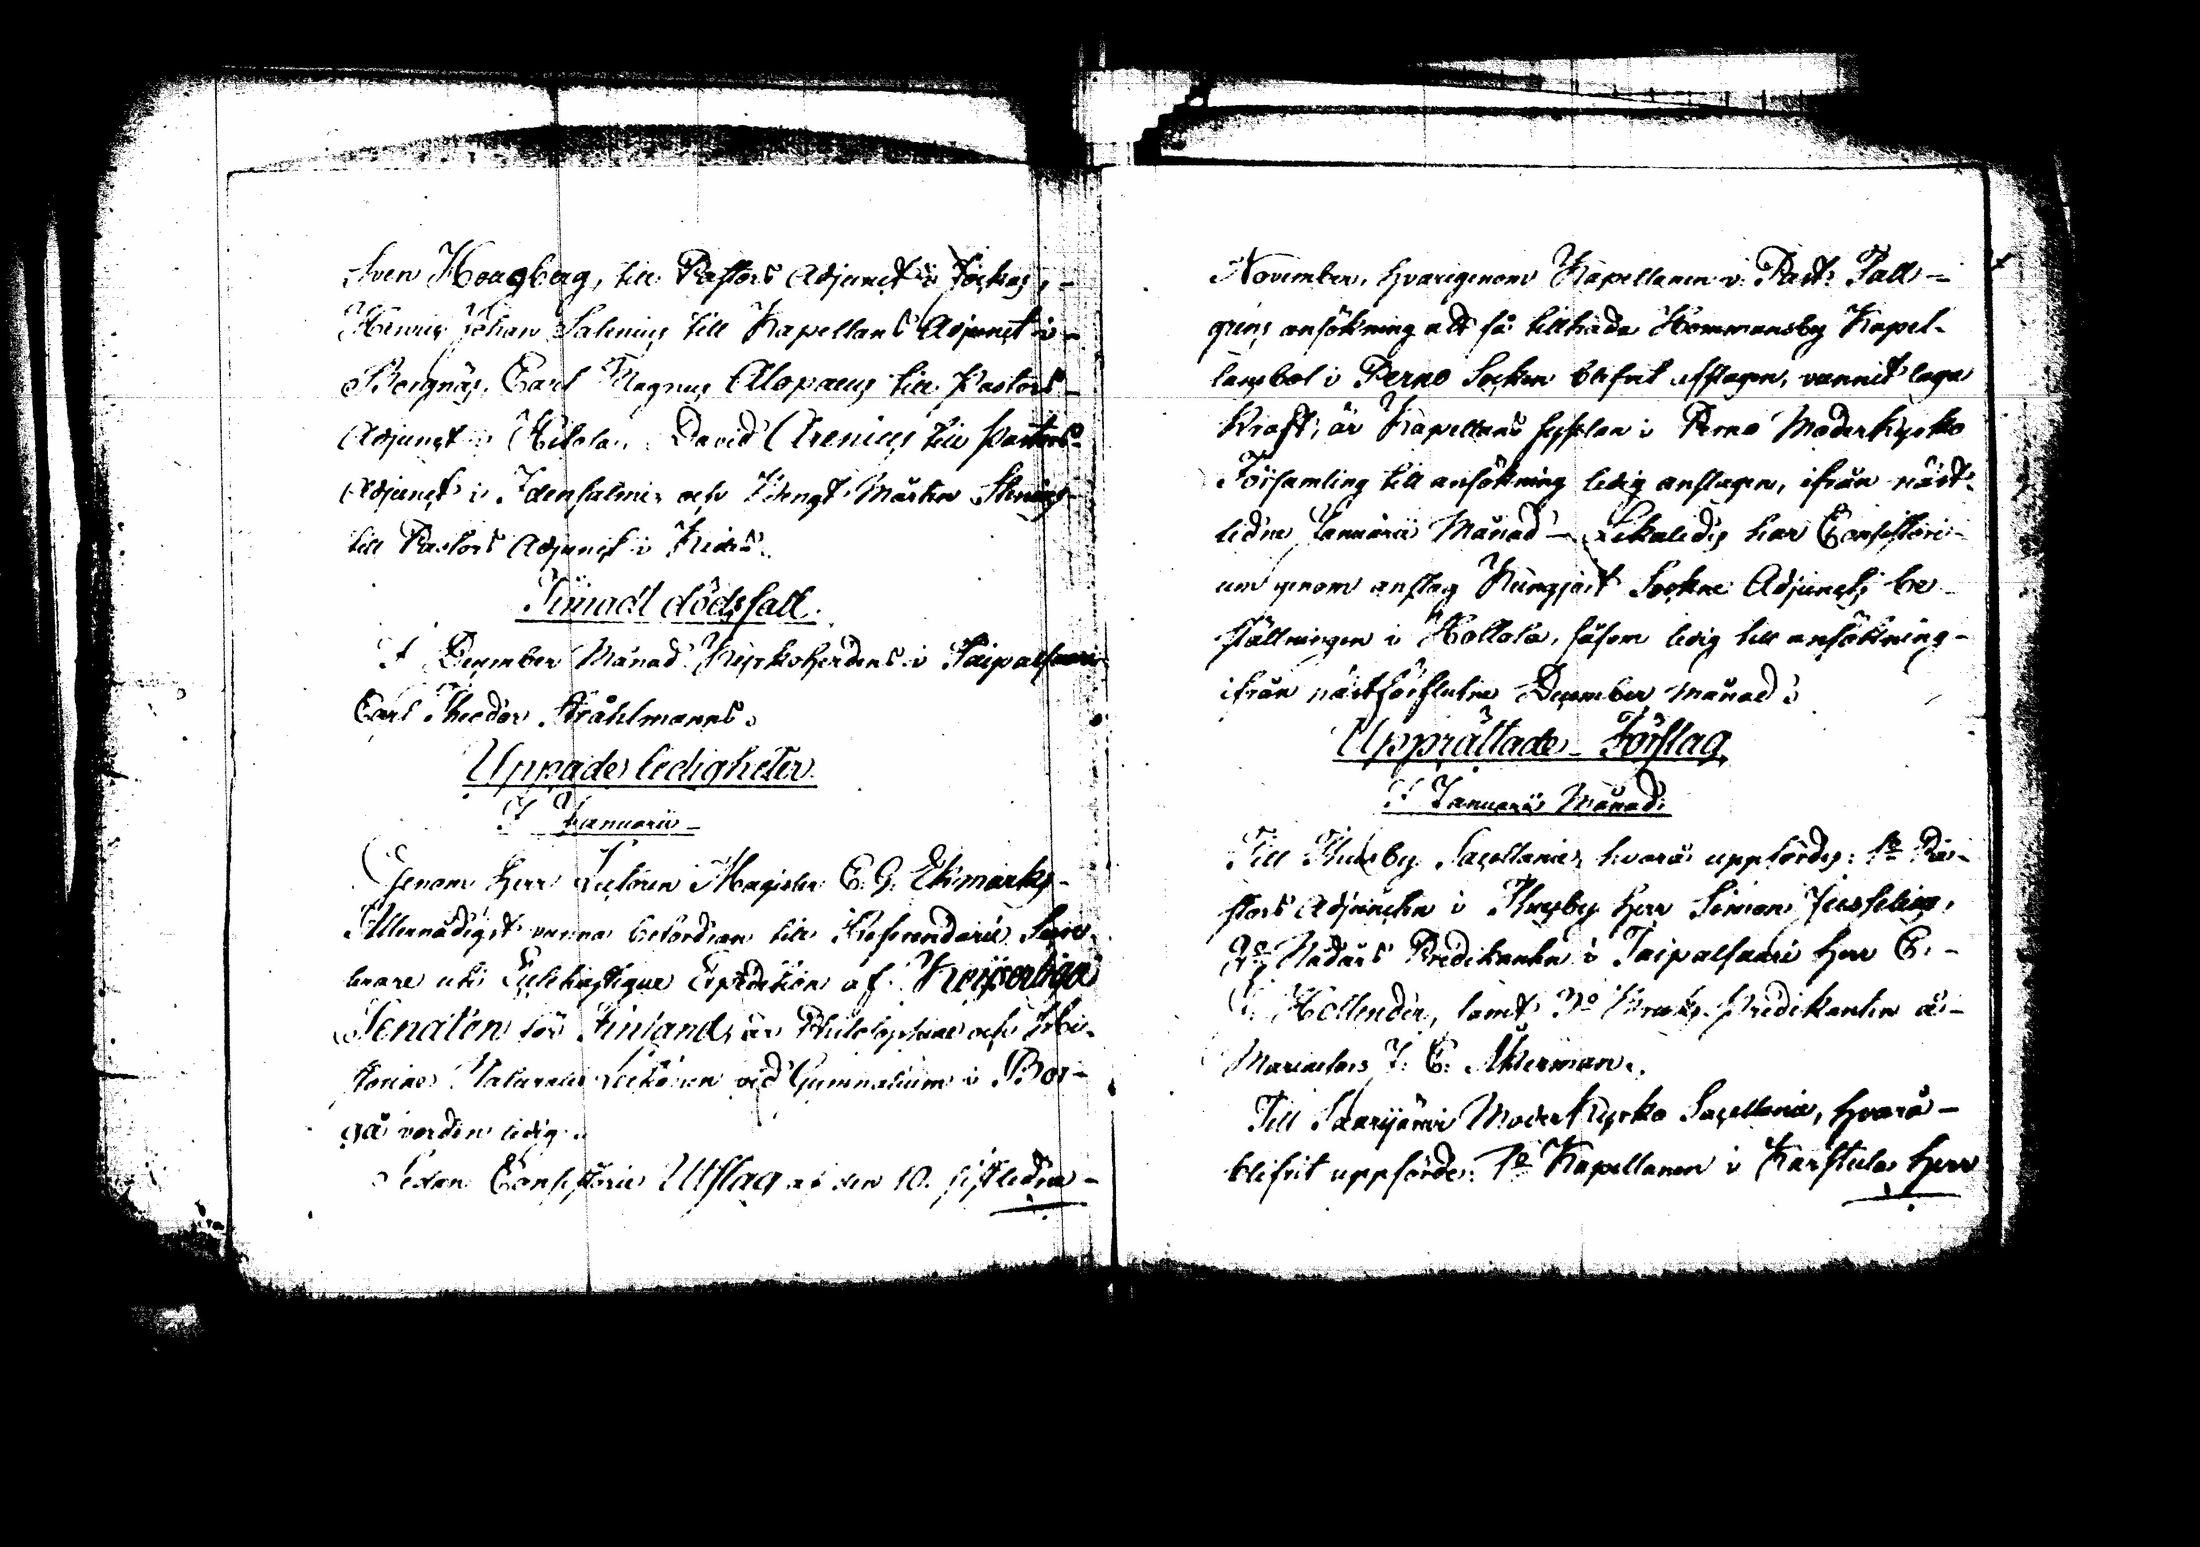 Sven Hougberg, till Pastors Adjunct i Jockas,
Henric Johan Salenius till Kapellans Adjunct i
Borgnäs, Carl Magnus Alopaeus till Pastors
Adjunct i Hiitola, David Arenius till Pastors
Adjunct i Idensalmi, och Bengt Mårten
till Pastors Adjunct i Kides.
Timadt dödsfall.
I December Månad Kyrkoherdens i Taipalsaari
Carl Theodor Stråhlmanns.
Uppgade ledigheter.
I Januarii
Genom Herr Lectoren Magister E. G. Ekmarks
Allernådigst vunna befordran till Referendarii
uti Ecclesiastique Expedition af Keijserliga
Senaten för Finland, är Philosophiae och Hi-
storiae Naturalis Lectionen vid Gymnasium i Bor-
gå vorden ledig.
Sedan Consistorii Utslag af den 10. sistledne
November, hvarigenom Kapellanen v. Past. Tall-
grens ansökning att få tillträda Hommansby Kapel-
lansbol i Perno Socken blifvit afslagen, vunnit laga
Kraft, är Kapellans sysslan i Perno Moderkyrko
Församling till ansökning ledig anslagen, ifrån näst-
lidne Januarii Månad. Likaledes har Consistori-
um genom anslag Kungjort Sockne Adjuncts be-
ställningen i Hollola, såsom ledig till ansökning
ifrån nästförflutne December Månad.
Upprättade Förslag
I Januarii Månad.
Till Thusby Sacellanie, hvarå uppfördes: 1o Pa-
stors Adjuncten i Thusby Herr Simon Jusselius,
2o Nådårs Predikanten i Taipalsaari Herr C.
Hollender, samt 3o Bruks Predikanten å
Mariaefors J. E. Åkerman.
Till Saarijärvi Moderkyrko Sacellanie, hvarå
blifvit uppförde: 1o Kapellanen i Karstula Herr